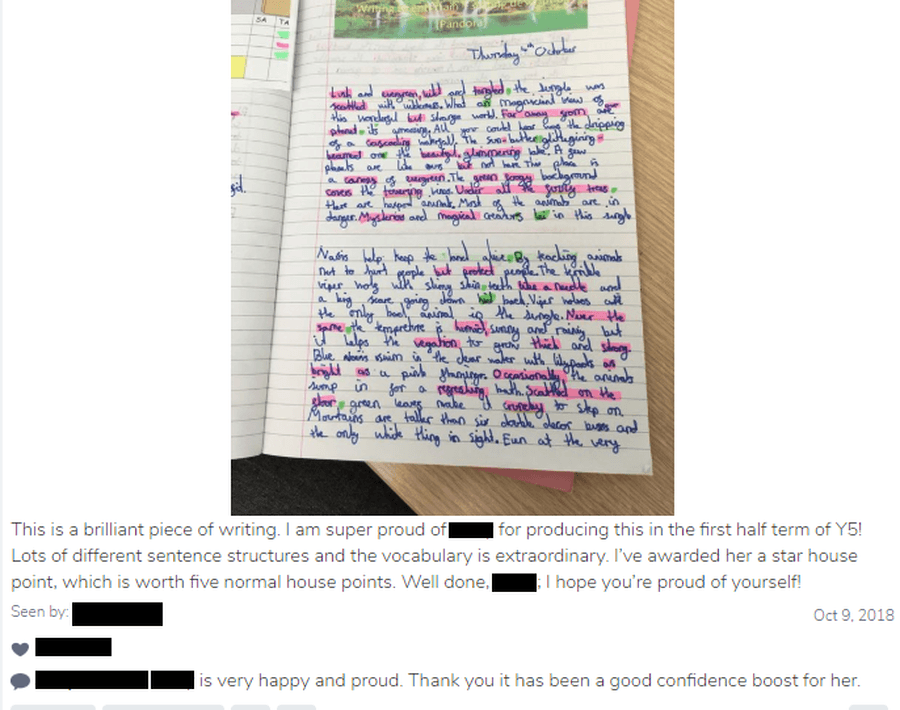 SA TA
(Pandora)
Thursday 4th October
Lush and evergreen, wild and tangled, the jungle was
scattled with wilderness. What an magniscial view of
this wonderful but strange world. Far away from our
planet, it's amazing. All you could hear was the dripping
of a cascading waterfall. The sun-butter
beamed over the beautiful, glimmering lake. A few
planets are like ours but not here. This place is
a canopy of evergreen. The green foggy background
covers the towering trees. Under all the trees,
there are animals. Most of the animals are in
danger. Mysterious and magical creatures in this jungle
Navis help keep the land alive. By teaching animals
not to hurt people but protect people. The terrible
viper wolf with slimy skin, teeth like a needle and
a big scare going down back. Viper wolves are
the only bad animal in the jungle. Never the
same, the tempreture is humid, sunny and rainy but
it helps the vegation to grow thick and strong.
Blue Navis swim in the clear water with lilypads as
bright as a pink flamingo. Occasionally, the animals
jump in for a refreshing bath. Scatted on the
floor, green leaves make it crunchy to step on.
Mountains are taller than six double decor buses and
the only white thing in sight. Even at the very
This is a brilliant piece of writing. I am super proud of for producing this in the first half term of Y5!
Lots of different sentence structures and the vocabulary is extraordinary. I've awarded her a star house
point, which is worth five normal house points. Well done, ; I hope you're proud of yourself!
Seen by:
Oct 9, 2018
is very happy and proud. Thank you it has been a good confidence boost for her.